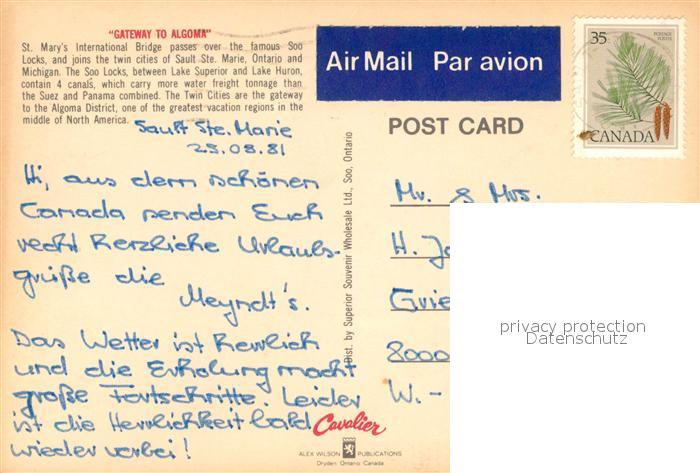 "GATEWAY TO ALGOMA"
St. Mary's International Bridge passes over the famous Soo
Locks, and joins the twin cities of Sault Ste. Marie, Ontario and
Michigan. The Soo Locks, between Lake Superior and Lake Huron,
contain 4 canals, which carry more water freight tonnage than
the Suez and Panama combined. The Twin Cities are the gateway
to the Algoma District, one of the greatest vacation regions in the
middle of North America.
Sault Ste. Marie
25.08.81
Hi, aus dem schönen
Canada senden Euch
recht herzliche Urlaubs-
grüße die
Meyndt's.
Das Wetter ist herrlich
und die Erholung macht
große Fortschritte. Leider
ist die Herrlichkeit bald
wieder vorbei!
Dist. by Superior Souvenir Wholesale Ltd., Soo, Ontario
Cavalier
ALEX WILSON PUBLICATIONS
Dryden Ontario Canada
Air Mail Par avion
35
POSTAGE
POSTES
CANADA
POST CARD
Mr. & Mrs.
H. Jo
Grie
8000
W. -
privacy protection
Datenschutz